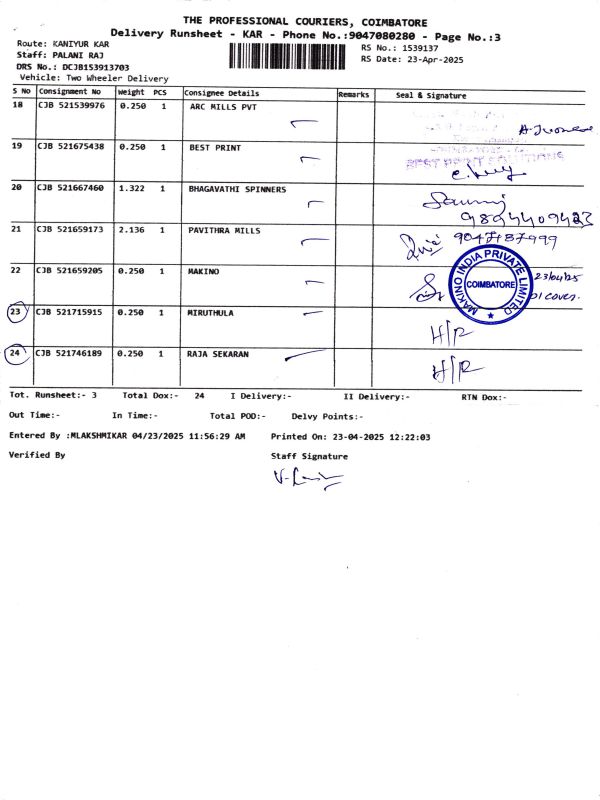 THE PROFESSIONAL COURIERS, COIMBATORE
Delivery Runsheet - KAR - Phone No.:9047080280 - Page No.:3
Route: KANIYUR KAR
RS No.: 1539137
Staff: PALANI RAJ
RS Date: 23-Apr-2025
DRS No.: DCJB153913703
Vehicle: Two Wheeler Delivery
S No Consignment No Weight PCS Consignee Details Remarks Seal & Signature
18 CJB 521539976 0.250 1 ARC MILLS PVT
19 CJB 521675438 0.250 1 BEST PRINT
BEST PRINT SOLUTIONS
20 CJB 521667460 1.322 1 BHAGAVATHI SPINNERS
9894409423
21 CJB 521659173 2.136 1 PAVITHRA MILLS
9047187999
22 CJB 521659205 0.250 1 MAKINO
MAKINO INDIA PRIVATE LIMITED
COIMBATORE
23/04/25
01 cover.
23 CJB 521715915 0.250 1 MIRUTHULA
H/R
24 CJB 521746189 0.250 1 RAJA SEKARAN
H/R
Tot. Runsheet:- 3 Total Dox:- 24 I Delivery:- II Delivery:- RTN Dox:-
Out Time:- In Time:- Total POD:- Delvy Points:-
Entered By :MLAKSHMIKAR 04/23/2025 11:56:29 AM Printed On: 23-04-2025 12:22:03
Verified By Staff Signature